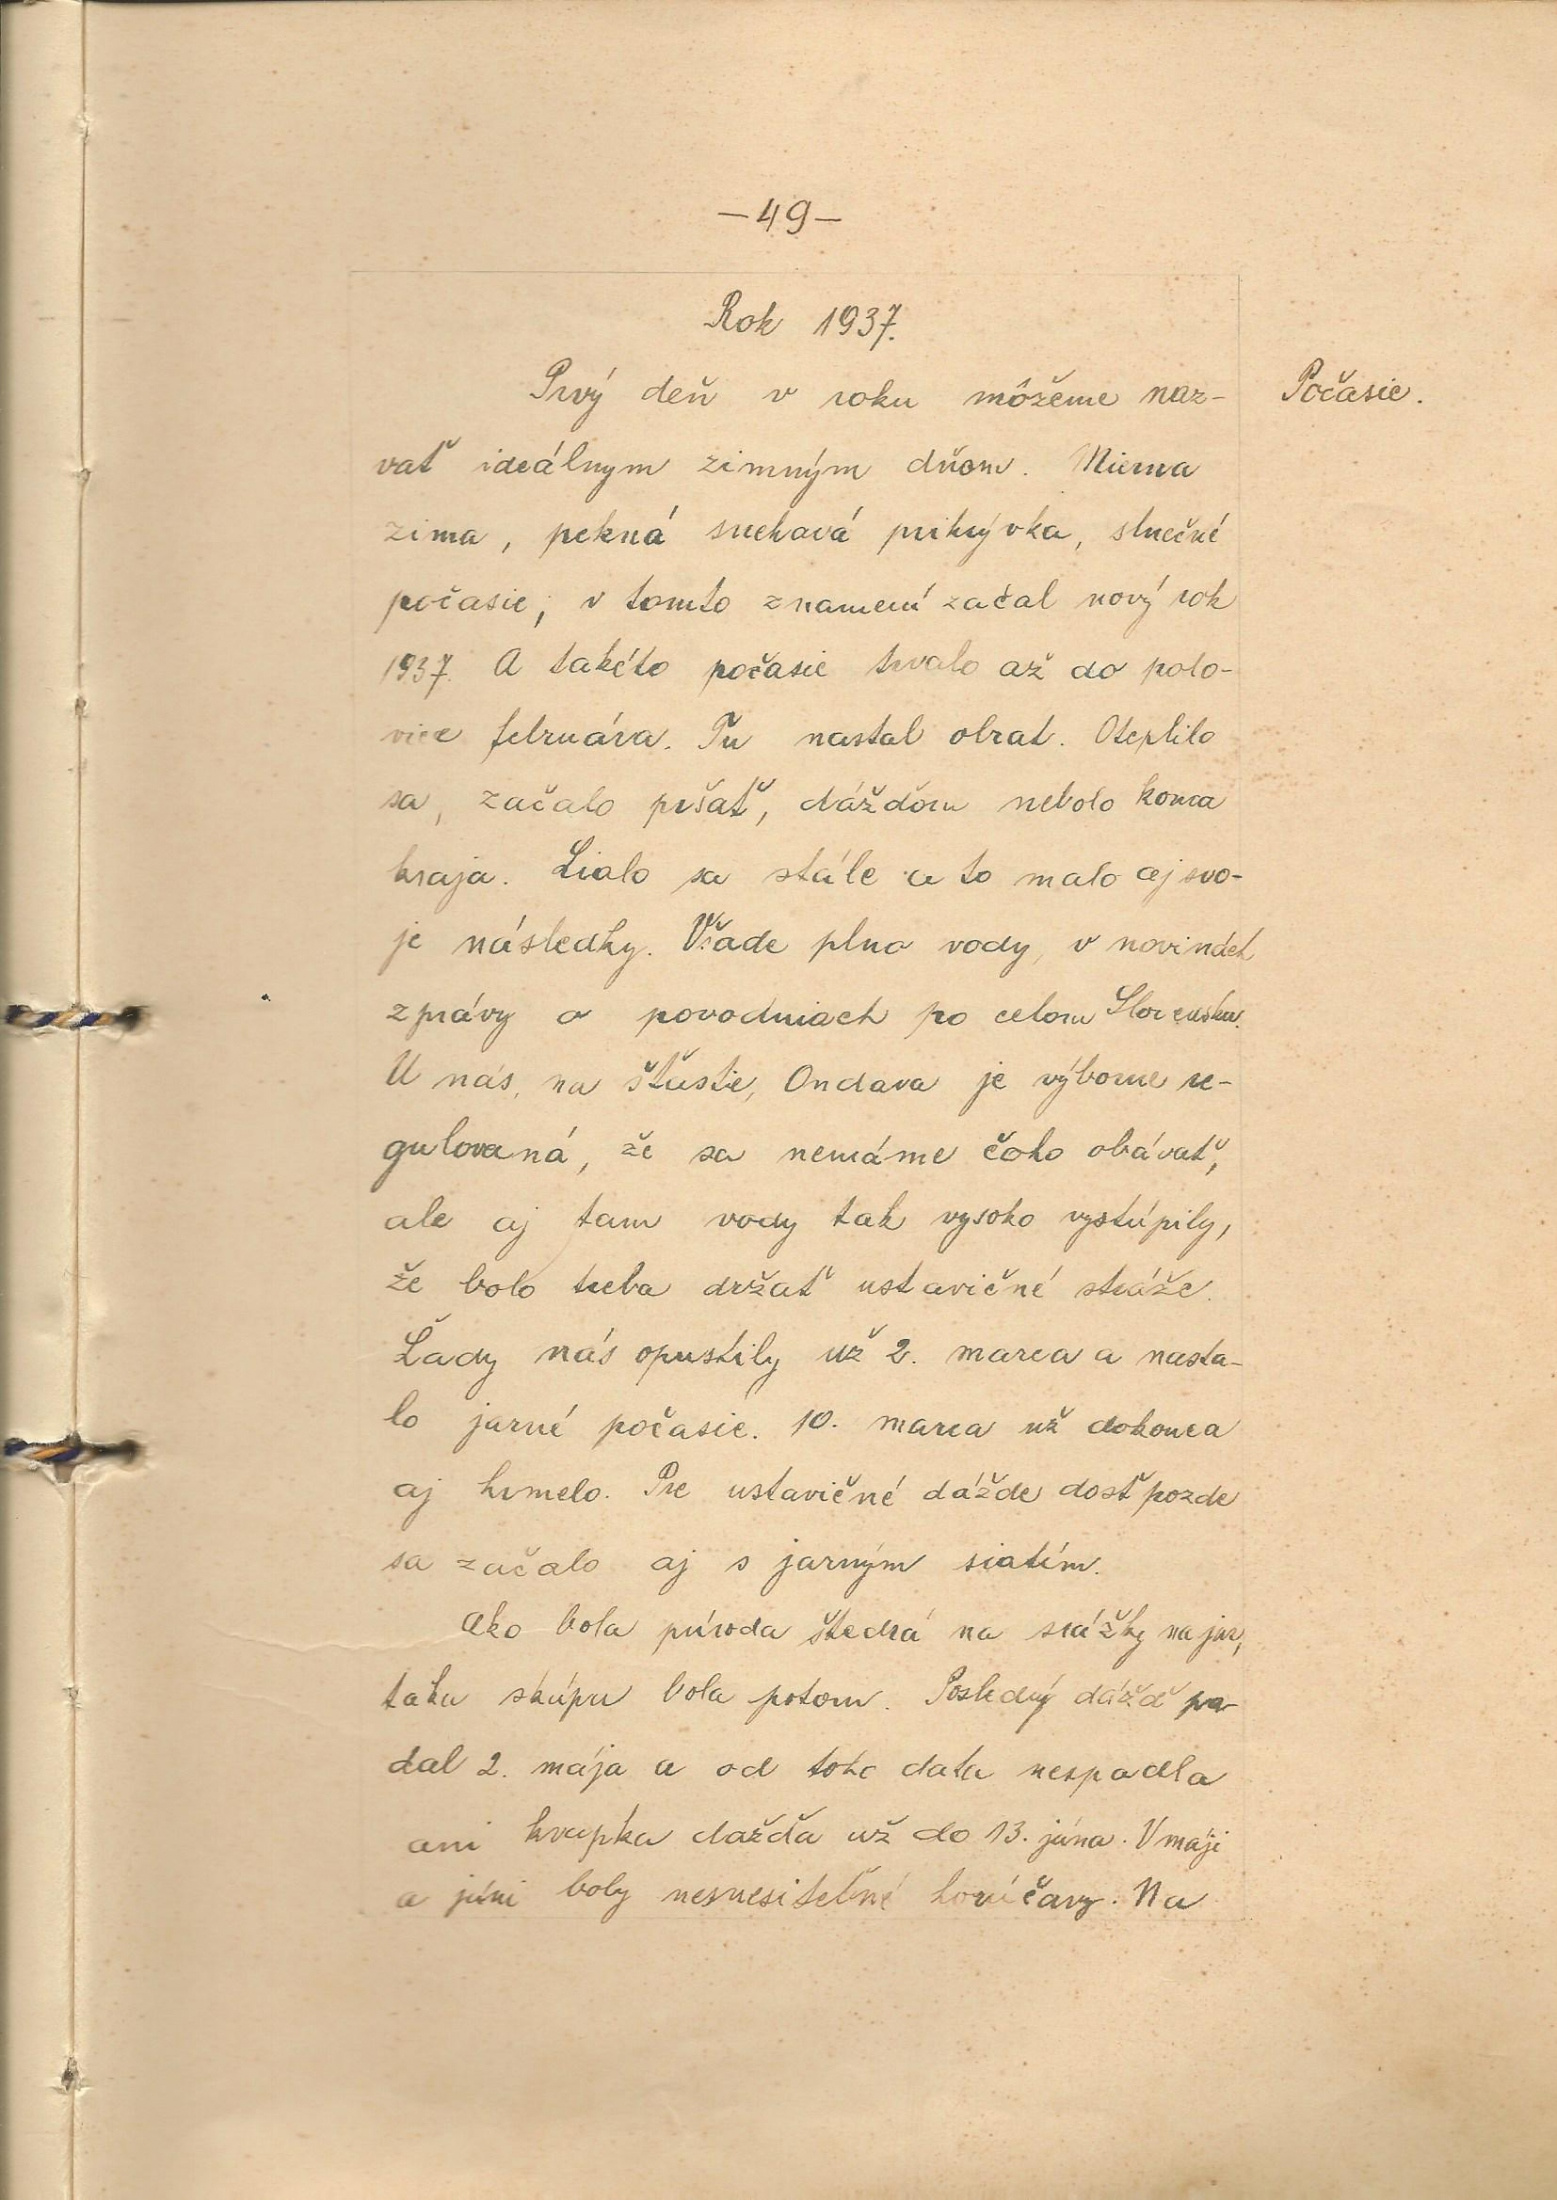 —49—
Rok 1937.
Prvý deň v roku môžeme naz-
Počasie.
vať ideálnym zimným dňom. Mierna
zima, pekná snehová prikrývka, slnečné
počasie, v tomto znamení začal nový rok
1937. A takéto počasie trvalo až do polo-
vice februára. Tu nastal obrat. Oteplilo
sa, začalo pršať, dážďom nebolo konca
kraja. Lialo sa stále a to malo aj svo-
je následky. Všade plno vody, v novinách
zprávy o povodniach po celom Slovensku.
U nás, na šťastie, Ondava je výborne re-
gulovaná, že sa nemáme čoho obávať,
ale aj tam vody tak vysoko vystúpily,
že bolo treba držať ustavičné stráže.
Ľady nás opustily už 2. marca a nasta-
lo jarné počasie. 10. marca už dokonca
aj hrmelo. Pre ustavičné dážde dosť pozde
sa začalo aj s jarným siatím.
Ako bola príroda štedrá na srážky na jar,
taka skúpa bola potom. Posledný dážď pa-
dal 2. mája a od toho data nespadla
ani kvapka dažďa už do 13. júna. V máji
a júni boly nesnesiteľné horúčavy. Na